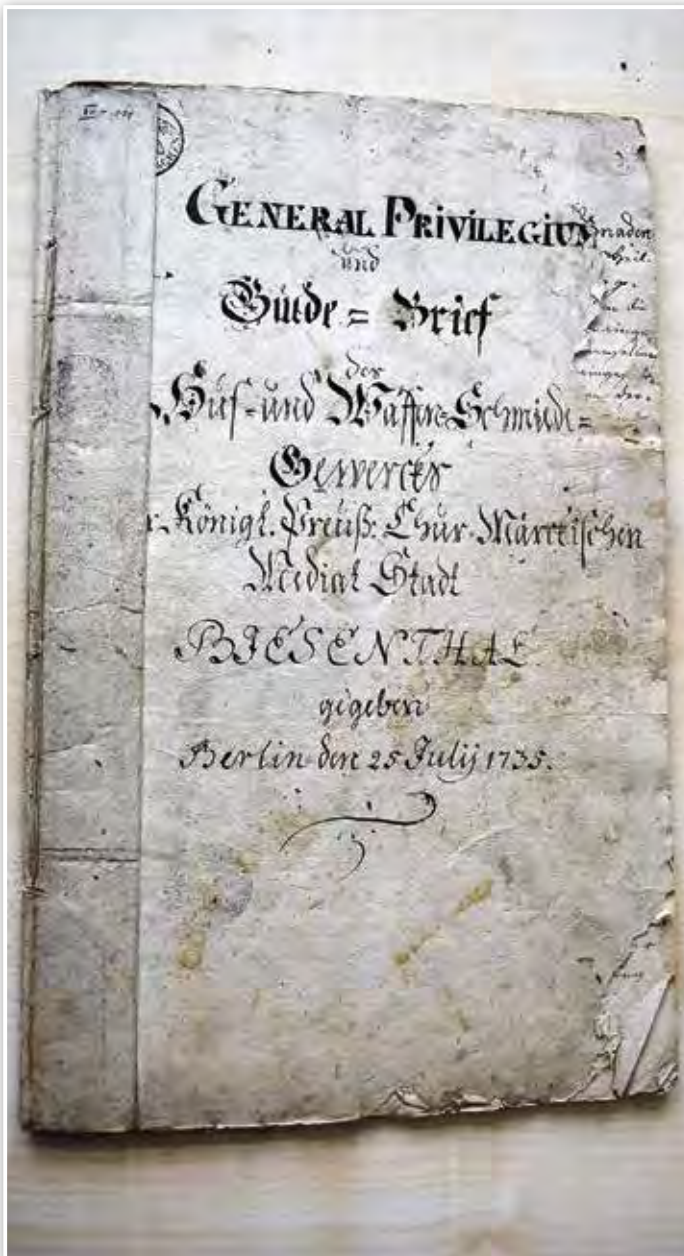 GENERAL PRIVILEGIUM
und
Gülde = Brief
des
Huf- und Waffen-Schmiede=
Gewercks
Königl. Preuß. Chur-Märckischen
Mediat Stadt
BIESENTHAL
gegeben
Berlin den 25 Julij 1735.